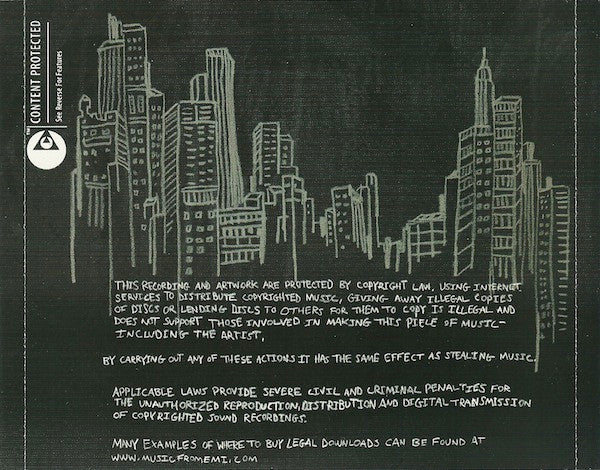 CONTENT PROTECTED
See Reverse For Features
TM
C
THIS RECORDING AND ARTWORK ARE PROTECTED BY COPYRIGHT LAW, USING INTERNET
SERVICES TO DISTRIBUTE COPYRIGHTED MUSIC, GIVING AWAY ILLEGAL COPIES
OF DISCS OR LENDING DISCS TO OTHERS FOR THEM TO COPY IS ILLEGAL AND
DOES NOT SUPPORT THOSE INVOLVED IN MAKING THIS PIECE OF MUSIC-
INCLUDING THE ARTIST,
BY CARRYING OUT ANY OF THESE ACTIONS IT HAS THE SAME EFFECT AS STEALING MUSIC.
APPLICABLE LAWS PROVIDE SEVERE CIVIL AND CRIMINAL PENALTIES FOR
THE UNAUTHORIZED REPRODUCTION, DISTRIBUTION AND DIGITAL TRANSMISSION
OF COPYRIGHTED SOUND RECORDINGS.
MANY EXAMPLES OF WHERE TO BUY LEGAL DOWNLOADS CAN BE FOUND AT
WWW.MUSICFROMEMI.COM